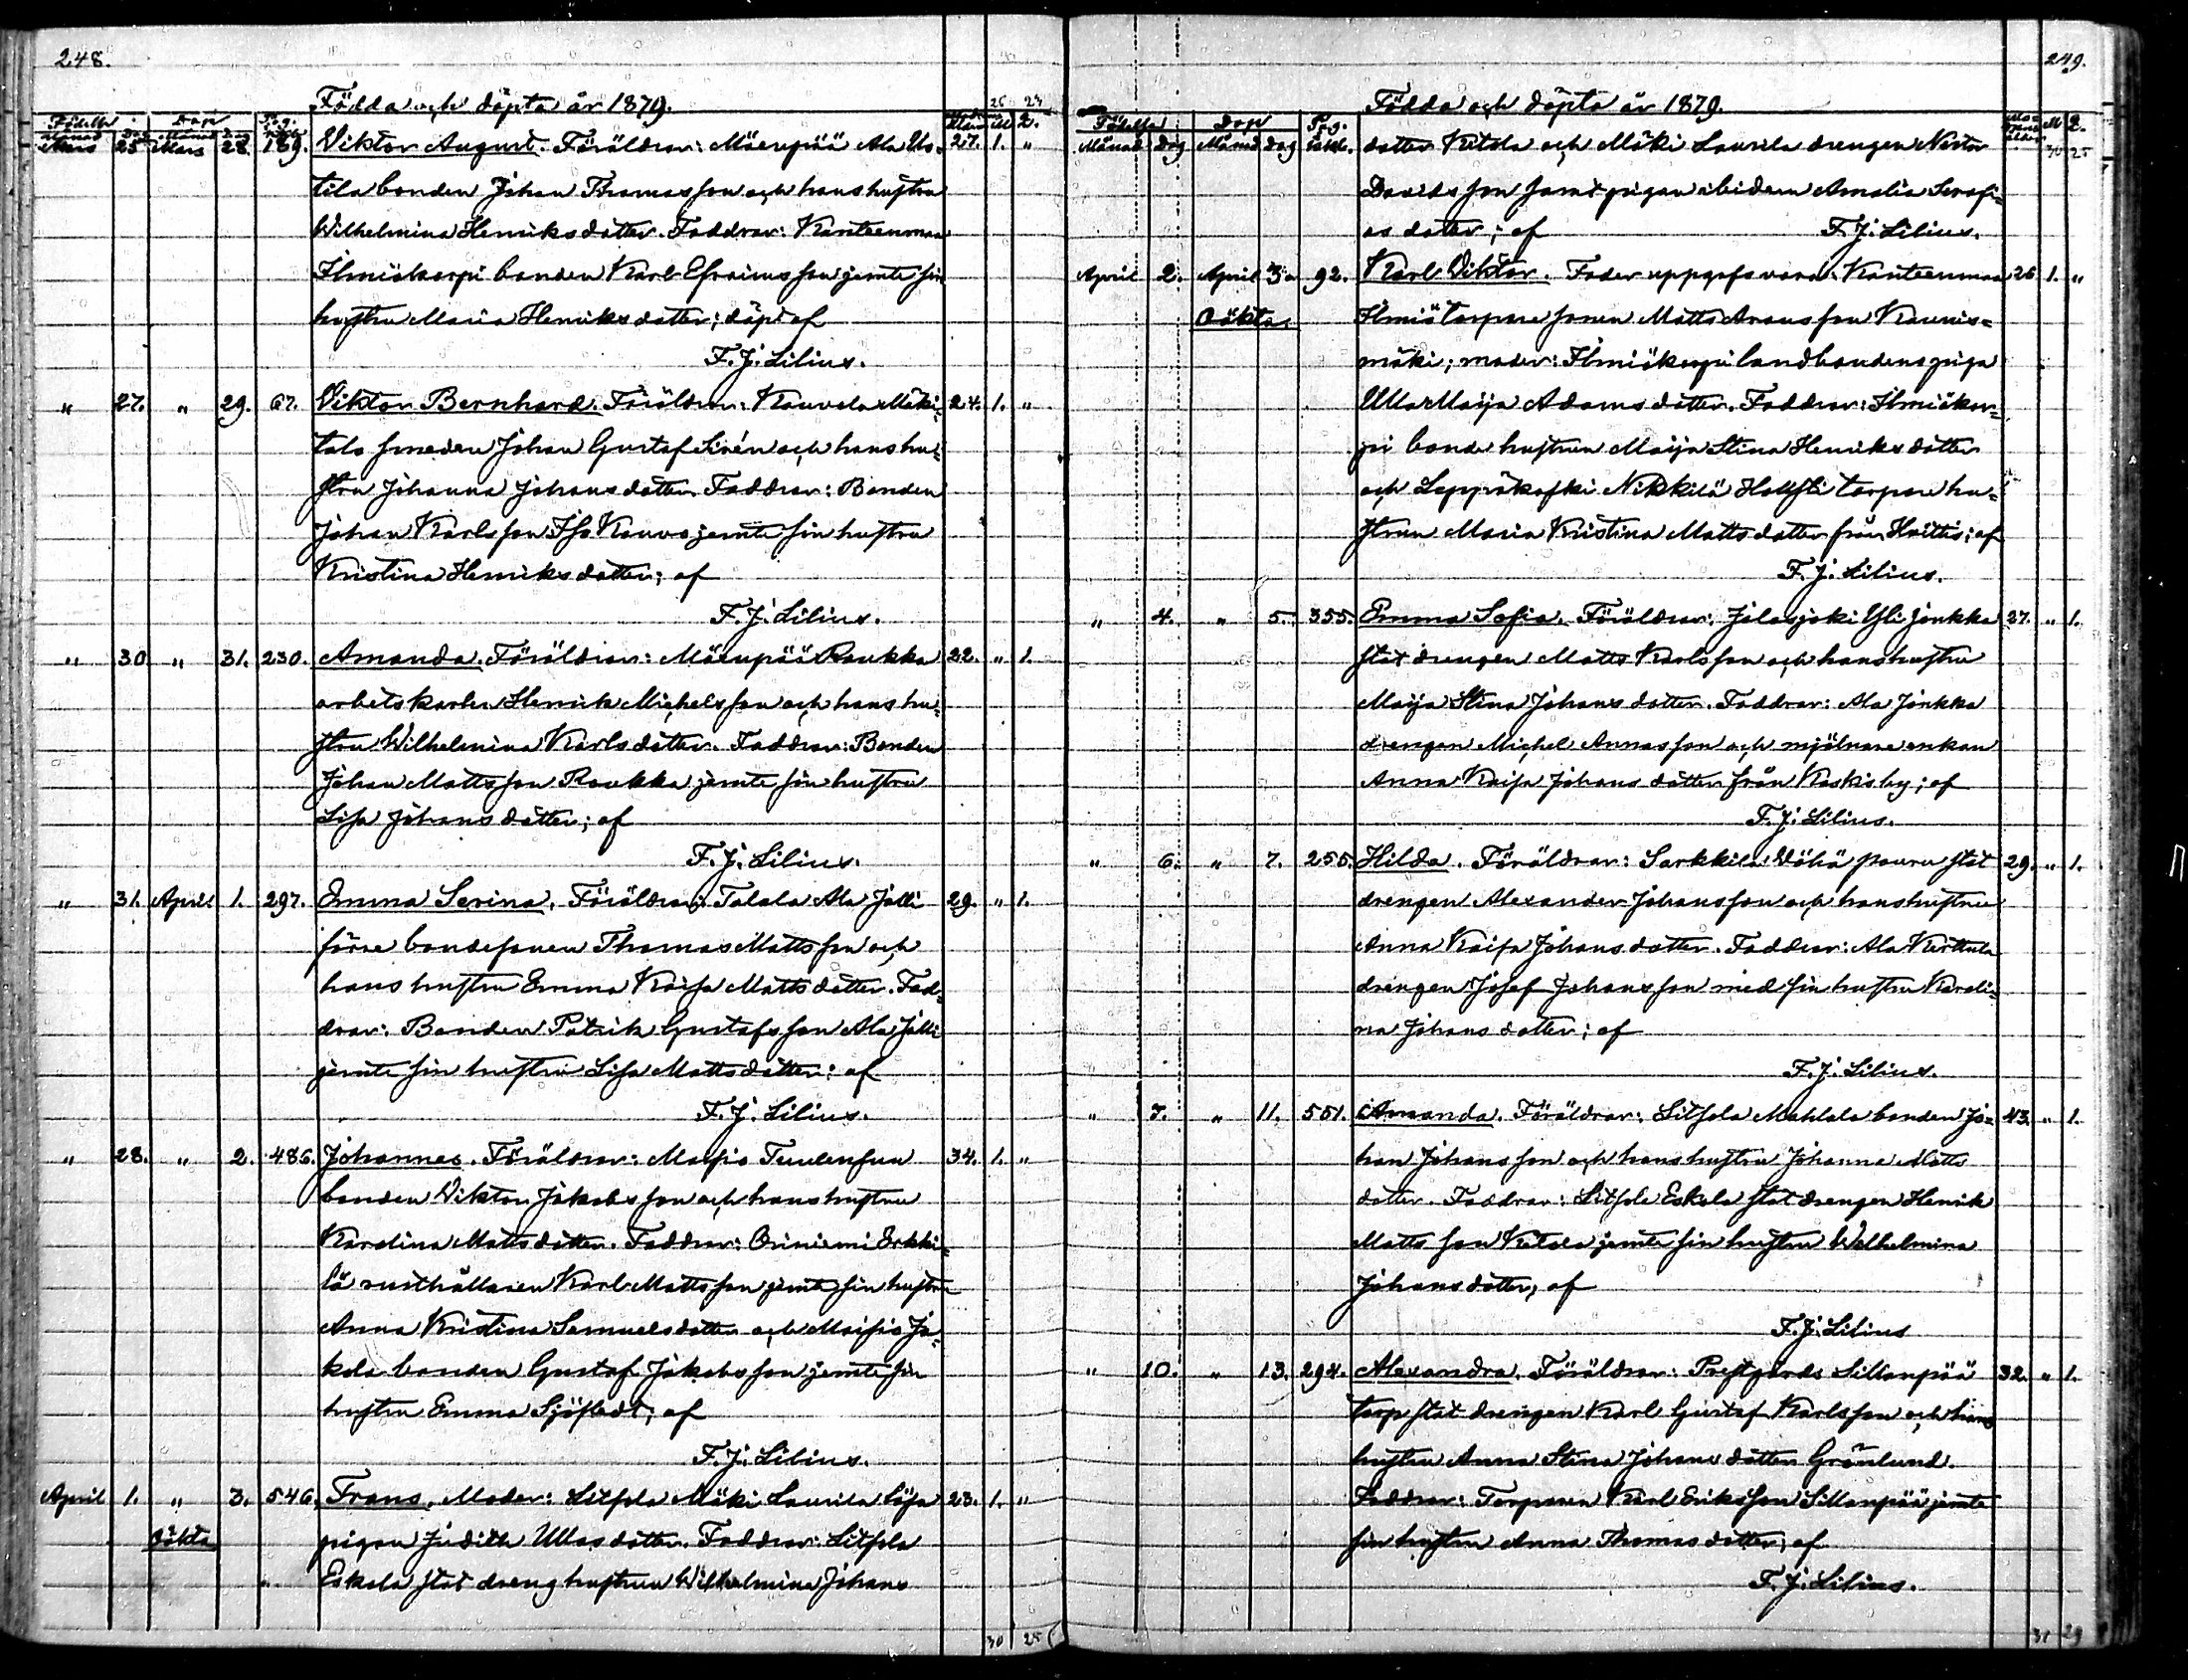 248.
Födda och döpta år 1879.
26 24
Födelse Dop Pag.
Månad Dag Månad Dag M. Q.
Mars 25 Mars 28. 189. Viktor August. Föräldrar: Mäenpää Ala Us= 27. 1. "
tila bonden Johan Thomasson och hans hustru
Wilhelmina Henriksdotter. Faddrar: Kanteenmaa
Ilmiökorpi bonden Karl Efraimsson jemte sin
hustru Maria Henriksdotter; döpt af
F. J. Lilius.
" 27. " 29. 67. Viktor Bernhard. Föräldrar: Kauvola Mäki= 24. 1. "
talo smeden Johan Gustaf Sirén och hans hu=
stru Johanna Johansdotter. Faddrar: Bonden
Johan Karlsson Iso Kauvo jemte sin hustru
Kristina Henriksdotter; af
F. J. Lilius.
" 30 " 31. 230. Amanda. Föräldrar: Mäenpää Raukka 22. " 1.
arbetskarlen Henrik Michelsson och hans hu=
stru Wilhelmina Karlsdotter. Faddrar: Bonden
Johan Mattsson Raukka jemte sin hustru
Lisa Johansdotter; af
F. J. Lilius.
" 31. April 1. 297. Emma Serina. Föräldrar: Talala Ala Jalli 29. " 1.
förre bondesonen Thomas Mattsson och
hans hustru Emma Kaisa Mattsdotter. Fad=
drar: Bonden Patrik Gustafsson Ala Jalli
jemte sin hustru Lisa Mattsdotter; af
F. J. Lilius.
" 28. " 2. 486. Johannes. Föräldrar: Tuulensuu 34. 1. "
bonden Viktor Jakobsson och hans hustru
Karolina Mattsdotter. Faddrar: Oriniemi Erkki=
lä rusthållaren Karl Mattsson jemte sin hustru
Anna Kristina Samuelsdotter och Ja=
kola bonden Gustaf Jakobsson jemte sin
hustru Emma Sjöstedt; af
F. J. Lilius.
April 1. " 3. 546. Frans. Moder: Litsola Mäki Laurila lösa 23. 1. "
oäkta pigan Judith Ullasdotter. Faddrar: Litsola
Eskola statdrenghustrun Wilhelmina Johans
30 25
249.
Födda och döpta år 1879.
Födelse Dop Pag.
Månad Dag Månad Dag M Q.
30 25
dotter Ketola och Mäki Laurila drengen Nestor
Davidsson samt pigan ibidem Amalia Serafi=
as dotter; af F. J. Lilius.
April 2. April 3. 92. Karl Viktor. Fader uppgafs vara: Kanteenmaa 26 1. "
oäkta Ilmiö torpare sonen Matts Aronsson Kaunis=
mäki; moder: Ilmiökorpi landbondens piga
Ulla Maija Adamsdotter. Faddrar: Ilmiökor=
pi bonde hustrun Maija Stina Henriksdotter
och Leppäkoski Nikkilä torpare hu=
strun Maria Kristina Mattsdotter från Huittis; af
F. J. Lilius.
" 4. " 5. 355. Emma Sofia. Föräldrar: Jalasjoki Yli Jonkka 27. " 1.
stat drengen Matts Karlsson och hans hustru
Maija Stina Johansdotter. Faddrar: Ala Jonkka
drengen Michel Annasson och mjölnare enkan
Anna Kaisa Johansdotter från Keskisby; af
F. J. Lilius.
" 6. " 7. 255. Hilda. Föräldrar: Sarkkila Vähä pouru stat 29. " 1.
drengen Alexander Johansson och hans hustru
Anna Kaisa Johansdotter. Faddrar: Ala Kerttula
drengen Josef Johansson med sin hustru Karoli=
na Johansdotter; af
F. J. Lilius.
" 7. " 11. 551. Amanda. Föräldrar: Litsola Mahlala bonden Jo= 43. " 1.
han Johansson och hans hustru Johanna Matts
dotter. Faddrar: Litsola Eskola stat drengen Henrik
Mattsson Ketola jemte sin hustru Wilhelmina
Johansdotter; af
F. J. Lilius
" 10. " 13. 294. Alexandra. Föräldrar: Prestgårds Sillanpää 32. " 1.
torp stat drengen Karl Gustaf Karlsson och hans
hustru Anna Stina Johansdotter Grönlund.
Faddrar: Torparen Karl Eriksson Sillanpää jemte
sin hustru Anna Thomasdotter; af
F. J. Lilius.
31 29